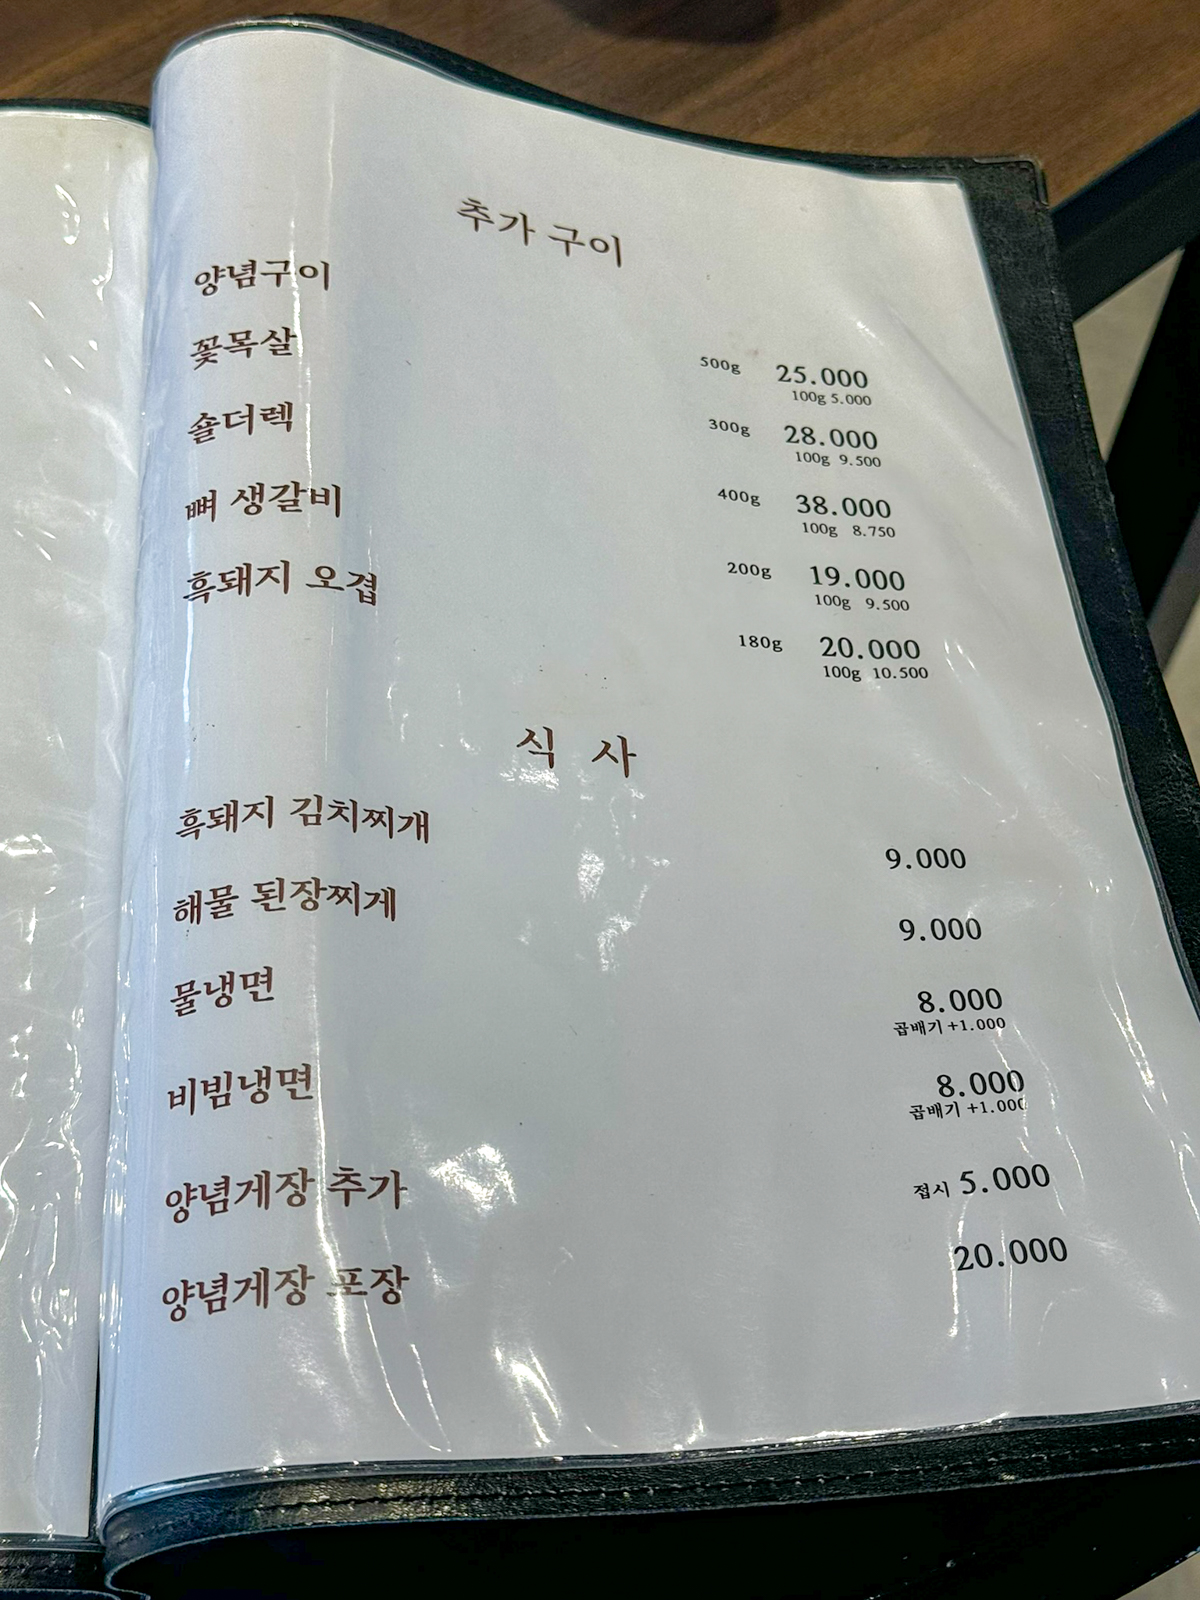 추가 구이
양념구이 500g 25.000
100g 5.000
꽃목살 300g 28.000
100g 9.500
숄더렉 400g 38.000
100g 8.750
뼈 생갈비 200g 19.000
100g 9.500
흑돼지 오겹 180g 20.000
100g 10.500
식 사
흑돼지 김치찌개 9.000
해물 된장찌게 9.000
물냉면 8.000
곱배기 +1.000
비빔냉면 8.000
곱배기 +1.000
양념게장 추가 접시 5.000
양념게장 포장 20.000